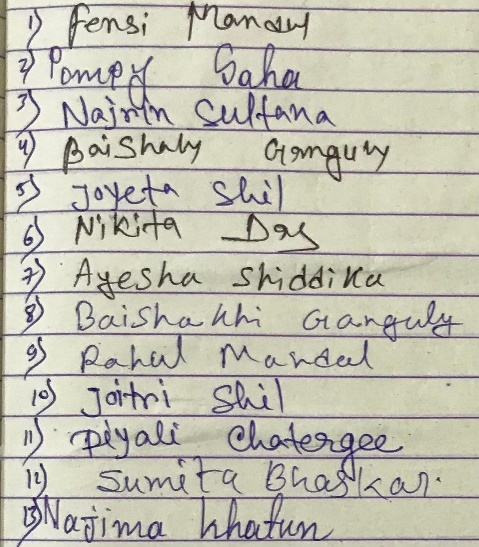 1) Fensi Mandal
2) Pompy Saha
3) Najnin Sultana
4) Baishaly Ganguly
5) Joyeta Shil
6) Nikita Das
7) Ayesha Shiddika
8) Baishakhi Ganguly
9) Rahul Mandal
10) Joitri Shil
11) Piyali Chatergee
12) Sumita Bhaskar.
13) Najima Khatun